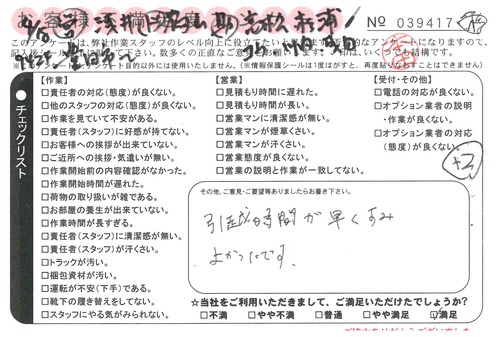 No 039417
このアンケートは、弊社作業スタッフのレベル向上に役立てたい
チェックリスト
【作業】
□責任者の対応(態度)が良くない。
□他のスタッフの対応(態度)が良くない。
□作業を見ていて不安がある。
□責任者(スタッフ)に好感が持てない。
□お客様への挨拶が出来ていない。
□ご近所への挨拶・気遣いが無い。
□作業開始前の内容確認がなかった。
□作業開始時間が遅れた。
□荷物の取り扱いが雑である。
□お部屋の養生が出来ていない。
□作業時間が長すぎる。
□責任者(スタッフ)に清潔感が無い。
□責任者(スタッフ)が汗くさい。
□トラックが汚い。
□梱包資材が汚い。
□運転が不安(下手)である。
□靴下の履き替えをしてない。
□スタッフにやる気がみられない。
【営業】
□見積もり時間に遅れた。
□見積もり時間が長い。
□営業マンに清潔感が無い。
□営業マンが煙草くさい。
□営業マンが汗くさい。
□営業態度が良くない。
□営業の説明と作業が一致してない。
【受付・その他】
□電話の対応が良くない。
□オプション業者の説明
・作業が良くない。
□オプション業者の対応
(態度)が良くない。
+3
その他、ご意見・ご要望等ありましたらお書き下さい。
引越時間が早くすみ
よかったです。
☆当社をご利用いただきまして、ご満足いただけたでしょうか?
□不満 □やや不満 □普通 □やや満足 □満足